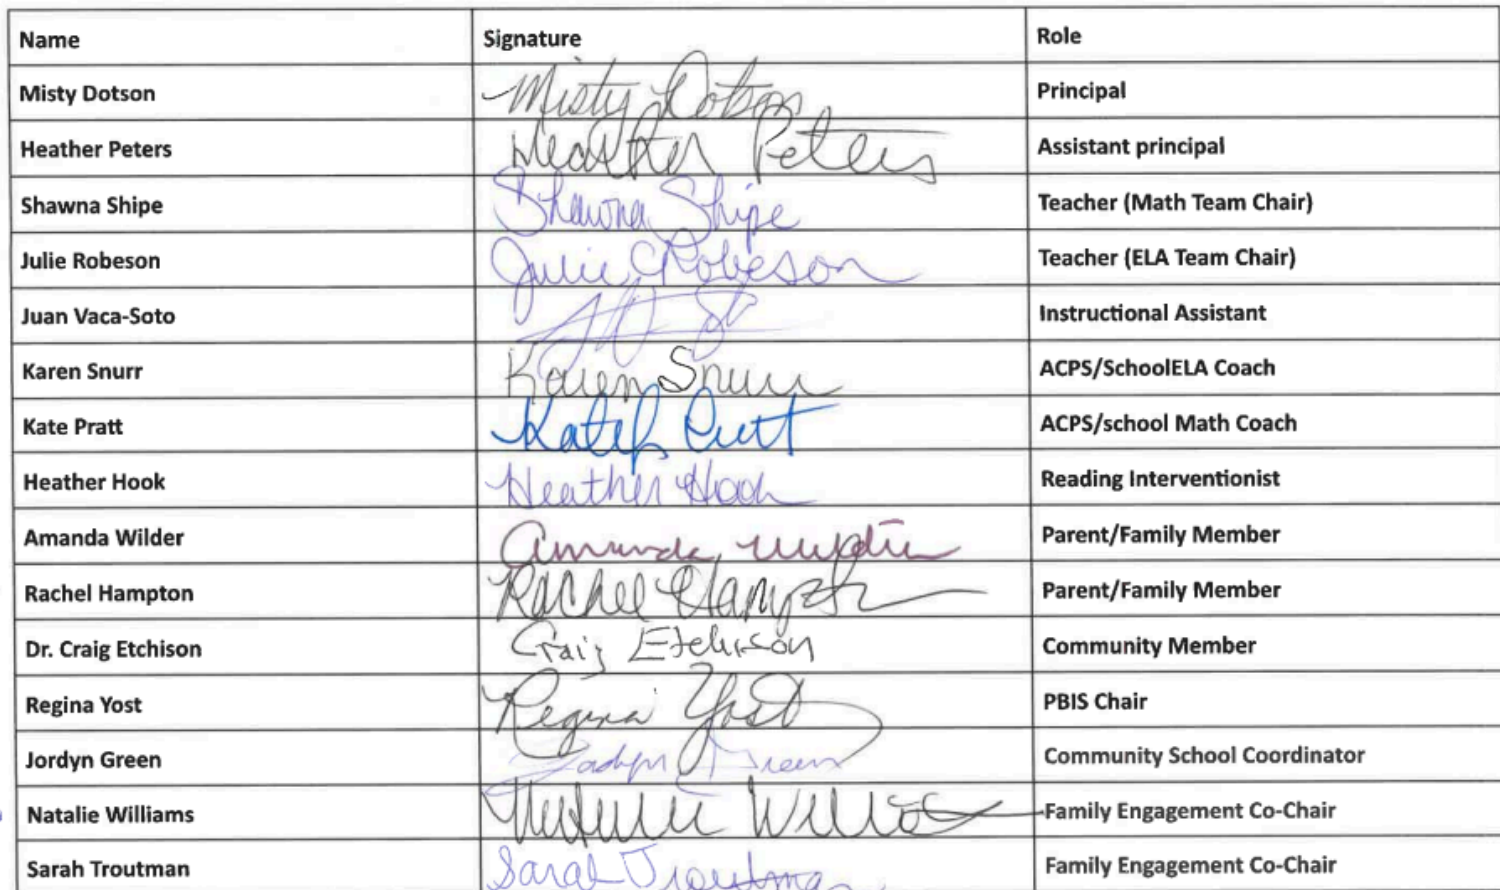 Name Signature Role
Misty Dotson Misty Dotson Principal
Heather Peters Heather Peters Assistant principal
Shawna Shipe Shawna Shipe Teacher (Math Team Chair)
Julie Robeson Julie C Robeson Teacher (ELA Team Chair)
Juan Vaca-Soto Instructional Assistant
Karen Snurr Karen Snurr ACPS/SchoolELA Coach
Kate Pratt ACPS/school Math Coach
Heather Hook Heather Hook Reading Interventionist
Amanda Wilder Amanda Parent/Family Member
Rachel Hampton Rachel Hampton Parent/Family Member
Dr. Craig Etchison Craig Etchison Community Member
Regina Yost Regina Yost PBIS Chair
Jordyn Green Jordyn Green Community School Coordinator
Natalie Williams Natalie Family Engagement Co-Chair
Sarah Troutman Sarah Troutman Family Engagement Co-Chair